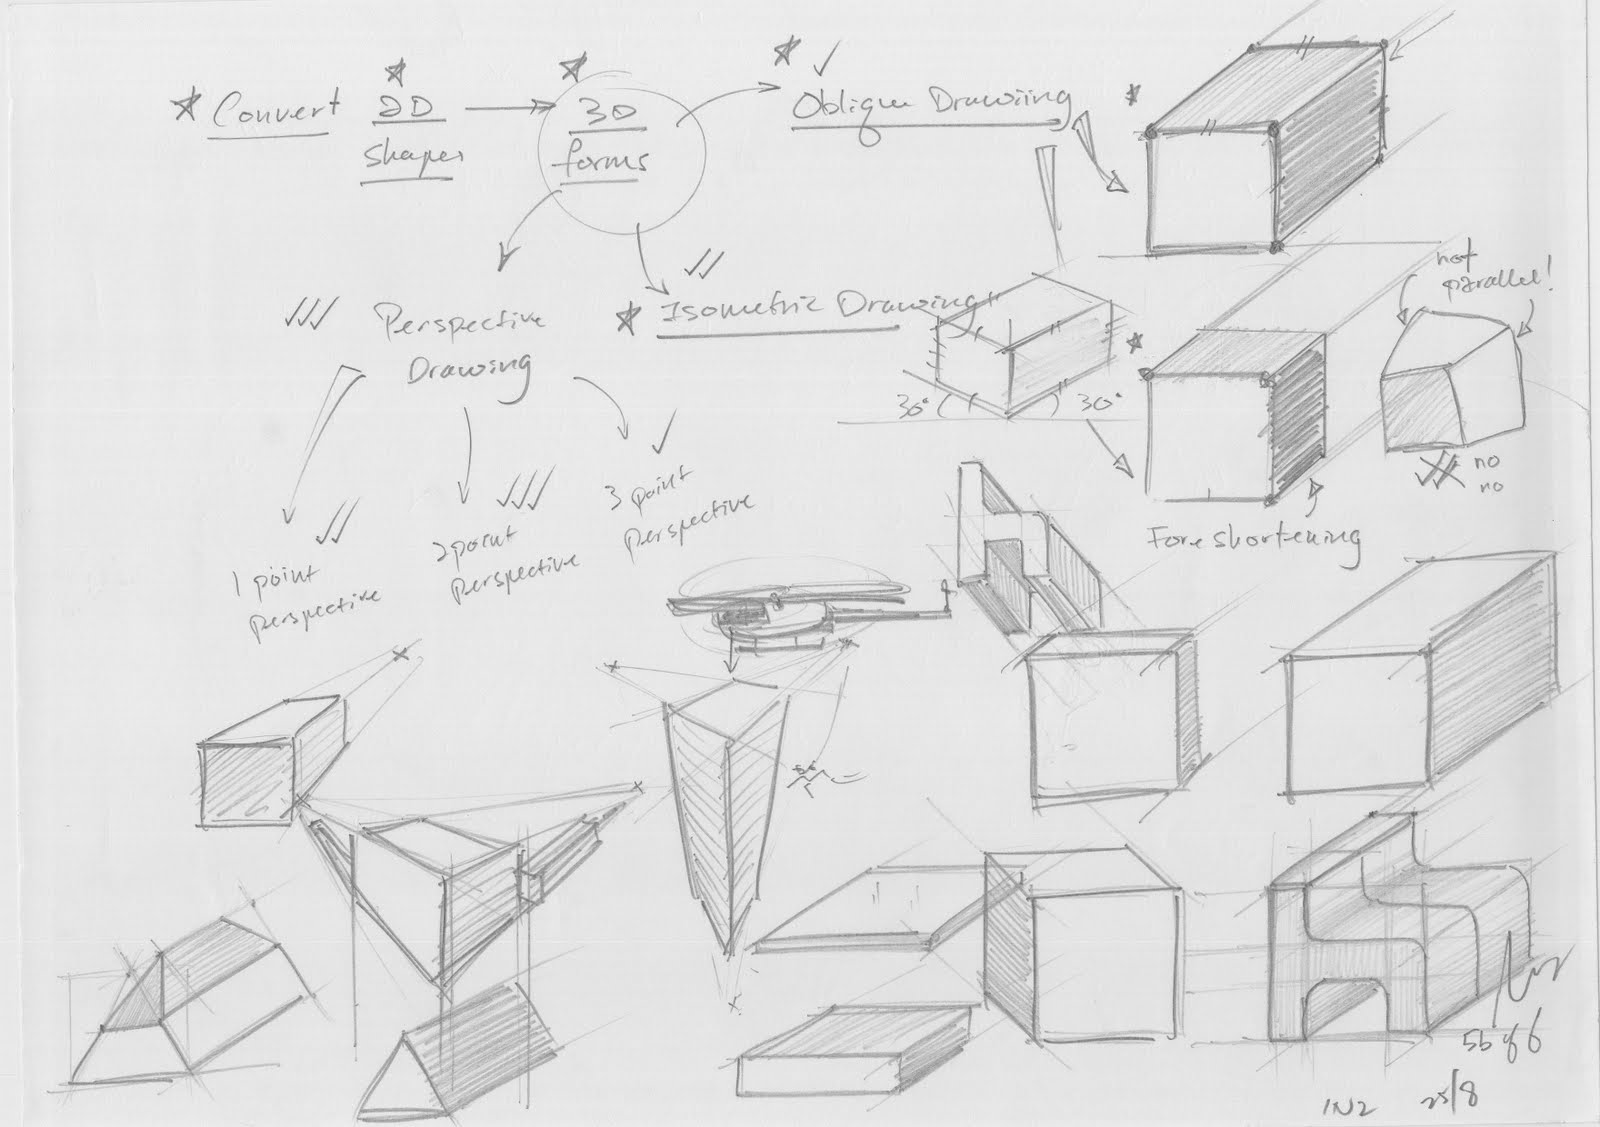 Convert 2D
shapes
3D
forms
Oblique Drawiing
not
parallel!
Perspective
Drawing
Isometric Drawing
30°
30°
no
no
Foreshortening
1 point
perspective
2 point
perspective
3 point
perspective
1N2
25/8